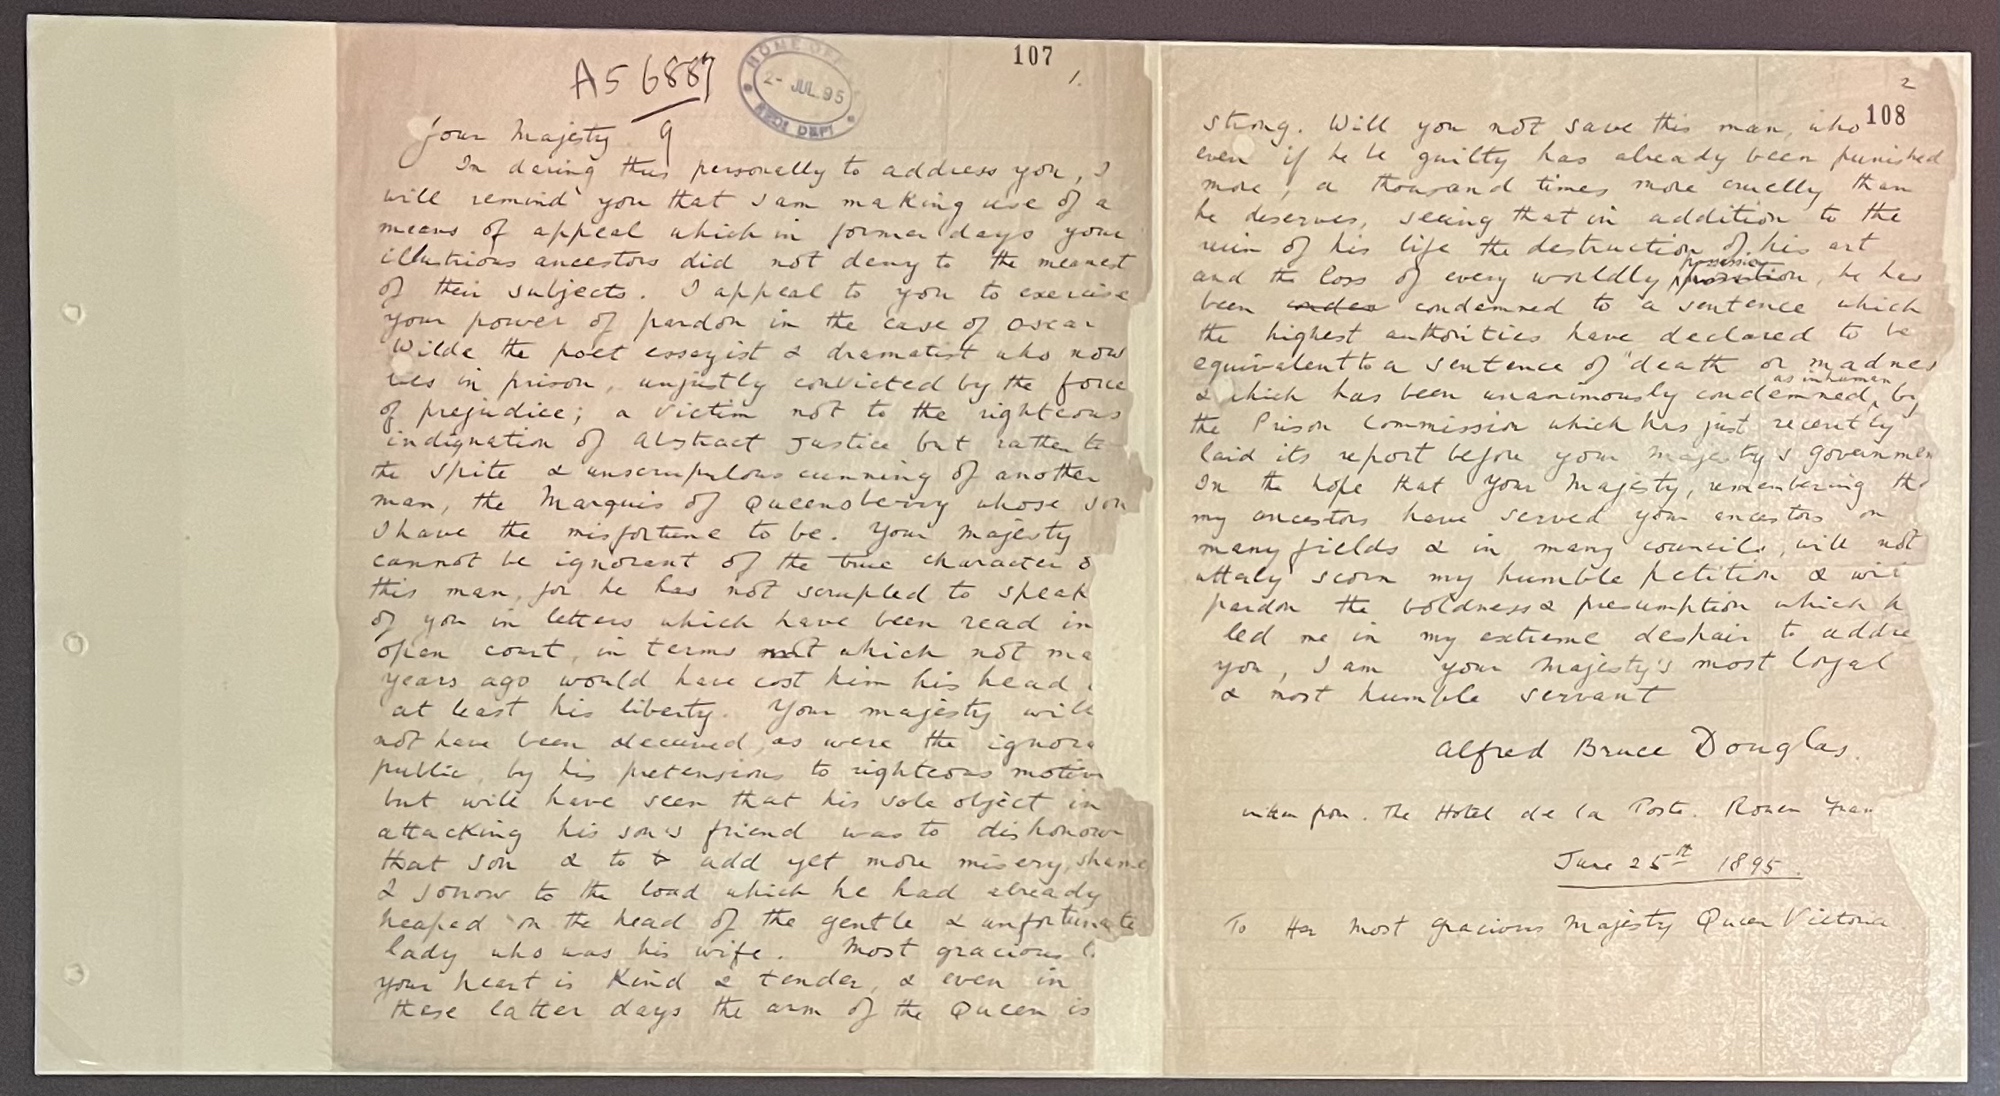 A56887
9
HOME OFF
2- JUL.95
RECE DEPT
107
1.
Your Majesty
In daring thus personally to address you, I
will remind you that I am making use of a
means of appeal which in former days your
illustrious ancestors did not deny to the meanest
of their subjects. I appeal to you to exercise
your power of pardon in the case of Oscar
Wilde the poet essayist & dramatist who now
lies in prison, unjustly convicted by the force
of prejudice; a victim not to the righteous
indignation of abstract justice but rather to
the spite & unscrupulous cunning of another
man, the Marquis of Queensberry whose son
I have the misfortune to be. Your Majesty
cannot be ignorant of the true character o
this man, for he has not scrupled to speak
of you in letters which have been read in
open court, in terms which not ma
years ago would have cost him his head
at least his liberty. Your majesty will
not have been deceived, as were the ignora
public, by his pretensions to righteous motiv
but will have seen that his sole object in
attacking his son's friend was to dishonour
that son & to to add yet more misery, shame
& sorrow to the load which he had already
heaped on the head of the gentle & unfortunate
lady who was his wife. Most gracious
your heart is kind & tender, & even in
these latter days the arm of the Queen is
2
108
strong. Will you not save this man, who
even if he be guilty has already been punished
more, a thousand times more cruelly than
he deserves, seeing that in addition to the
ruin of his life the destruction of his art
possession
and the loss of every worldly position, he has
been condemned to a sentence which
the highest authorities have declared to be
equivalent to a sentence of "death or madnes
as inhuman
& which has been unanimously condemned, by
the Prison Commission which has just recently
laid its report before your majesty's governmen
In the hope that Your Majesty, remembering tha
my ancestors have served your ancestors on
many fields & in many councils, will not
utterly scorn my humble petition & wil
pardon the boldness & presumption which h
led me in my extreme despair to addre
you, I am your Majesty's most loyal
& most humble servant
Alfred Bruce Douglas.
written from. The Hotel de la Poste. Rouen Fran
June 25th 1895.
To Her Most Gracious Majesty Queen Victoria